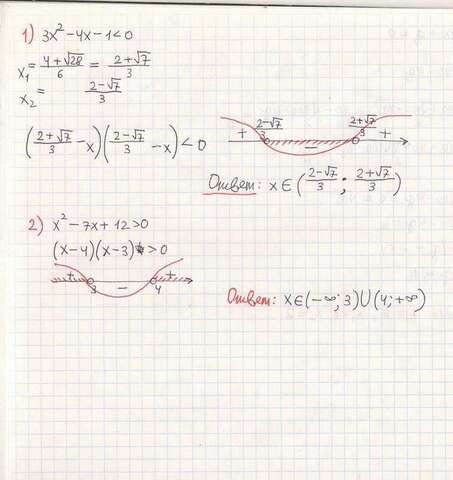 1) 3x² - 4x - 1 < 0
x₁ = (4 + √28)/6 = (2 + √7)/3
x₂ = (2 - √7)/3
((2 + √7)/3 - x)((2 - √7)/3 - x) < 0
+ (2 - √7)/3 - (2 + √7)/3 +
Ответ: x ∈ ((2 - √7)/3 ; (2 + √7)/3)
2) x² - 7x + 12 > 0
(x - 4)(x - 3) > 0
+ 3 - 4 +
Ответ: x ∈ (-∞; 3) ∪ (4; +∞)